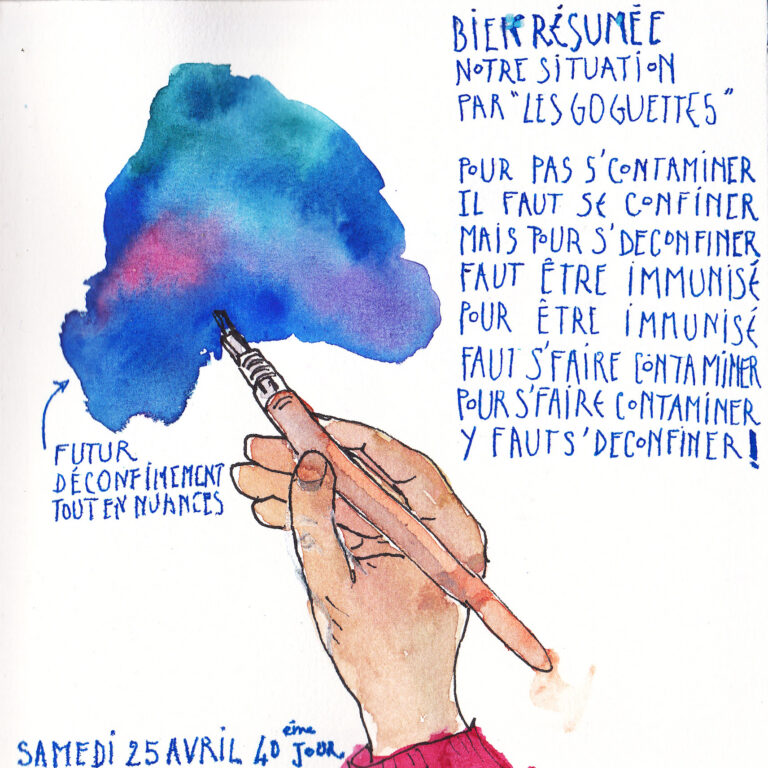 BIEN RÉSUMÉE
NOTRE SITUATION
PAR "LES GOGUETTES"
POUR PAS S'CONTAMINER
IL FAUT SE CONFINER
MAIS POUR S'DECONFINER
FAUT ÊTRE IMMUNISÉ
POUR ÊTRE IMMUNISÉ
FAUT S'FAIRE CONTAMINER
POUR S'FAIRE CONTAMINER
Y FAUT S'DECONFINER!
FUTUR
DÉCONFINEMENT
TOUT EN NUANCES
SAMEDI 25 AVRIL 40ème JOUR